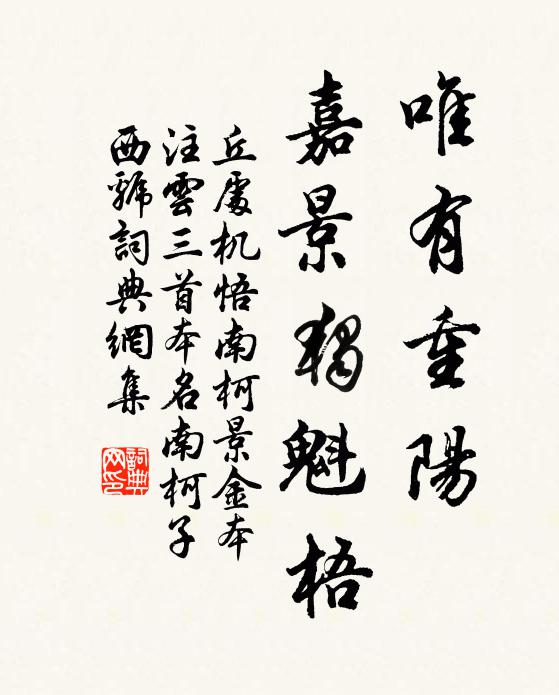 唯有重陽
嘉景獨魁梧
丘處机悟南柯景金本
注雲三首本名南柯子
西虢詞典網集
詞典网印